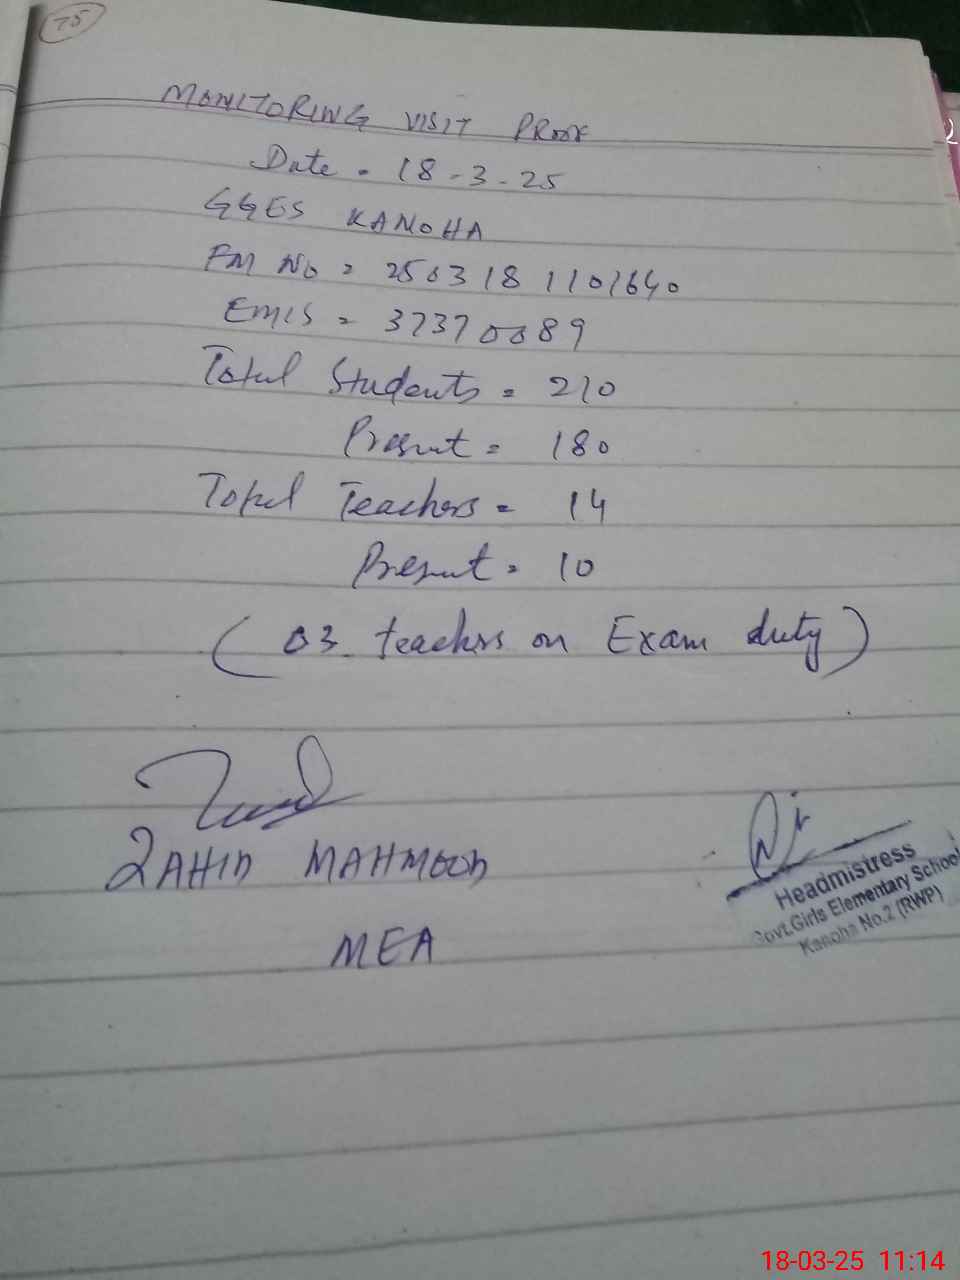 75
MONITORING VISIT PROOF
Date = 18-3-25
GGES KANOHA
FM No = 250318 1101640
EMIS = 37370089
Total Students = 210
Present = 180
Total Teachers = 14
Present = 10
(03 teachers on Exam duty)
ZAHID MAHMOOD
MEA
Headmistress
Govt.Girls Elementary School
Kanoha No.2 (RWP)
2
18-03-25 11:14